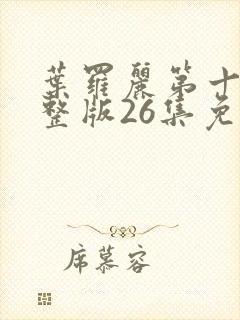 葉羅麗第十
整版26集免
席慕容